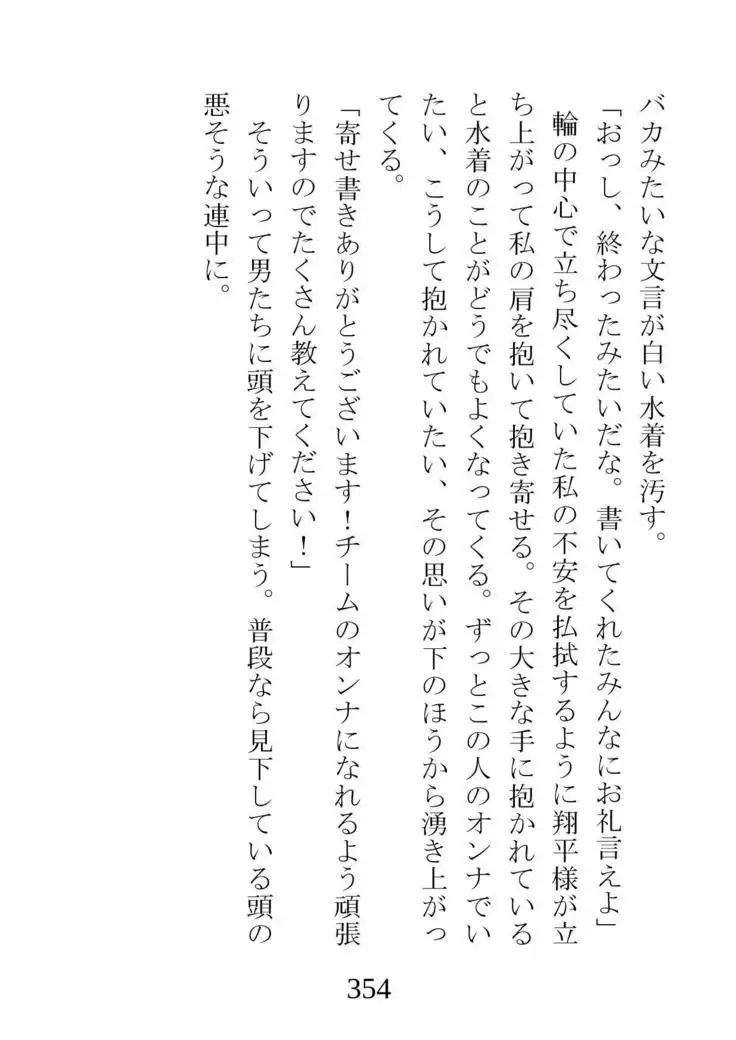 バカみたいな文言が白い水着を汚す。
「おっし、終わったみたいだな。書いてくれたみんなにお礼言えよ」
　輪の中心で立ち尽くしていた私の不安を払拭するように翔平様が立
ち上がって私の肩を抱いて抱き寄せる。その大きな手に抱かれている
と水着のことがどうでもよくなってくる。ずっとこの人のオンナでい
たい、こうして抱かれていたい、その思いが下のほうから湧き上がっ
てくる。
「寄せ書きありがとうございます！チームのオンナになれるよう頑張
りますのでたくさん教えてください！」
　そういって男たちに頭を下げてしまう。普段なら見下している頭の
悪そうな連中に。
354